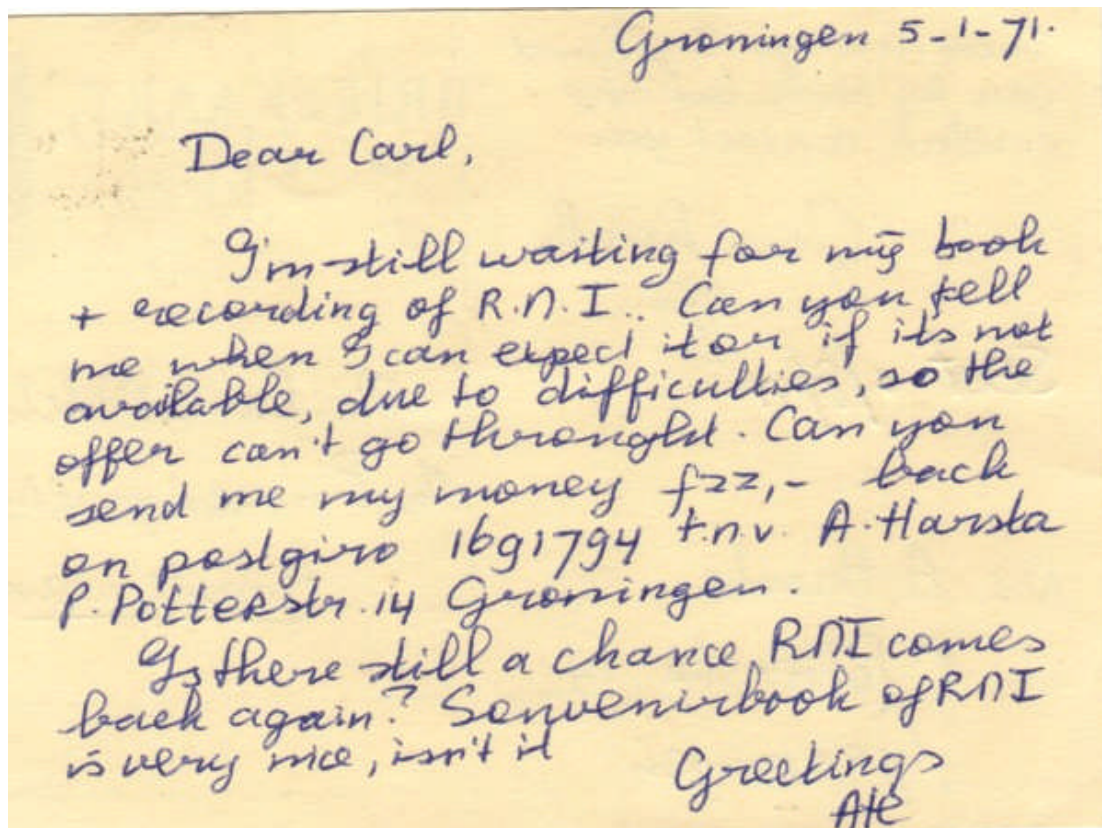 Groningen 5-1-71.
Dear Carl,
I'm still waiting for my book
+ recording of R.N.I.. Can you tell
me when I can expect it or if its not
available, due to difficulties, so the
offer can't go throught. Can you
send me my money f22,- back
on postgiro 1691794 t.n.v. A. Harsta
P. Potterstr. 14 Groningen.
Is there still a chance RNI comes
back again? Souvenirbook of RNI
is very nice, isn't it
Greetings